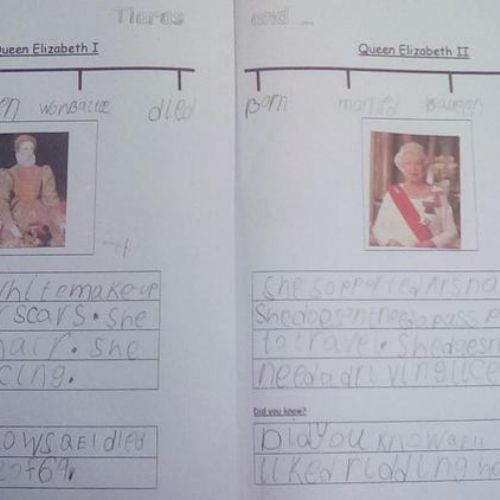 Tiaras and ...
Queen Elizabeth I
wonBattle died
whitemakeup
scars. She
hair. She
cing.
owsaEI died
of 69.
Queen Elizabeth II
Born married
She soported Arsnal
Shedoesentneedapassp
to travel. Shedoesn
needadrivinglice
Did you know?
Did you know QEII
liked ridding ho